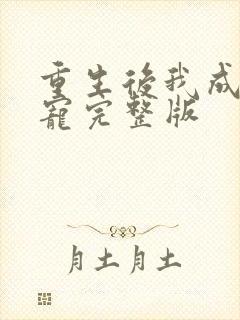 重生後我成
寵完整版
月土月土